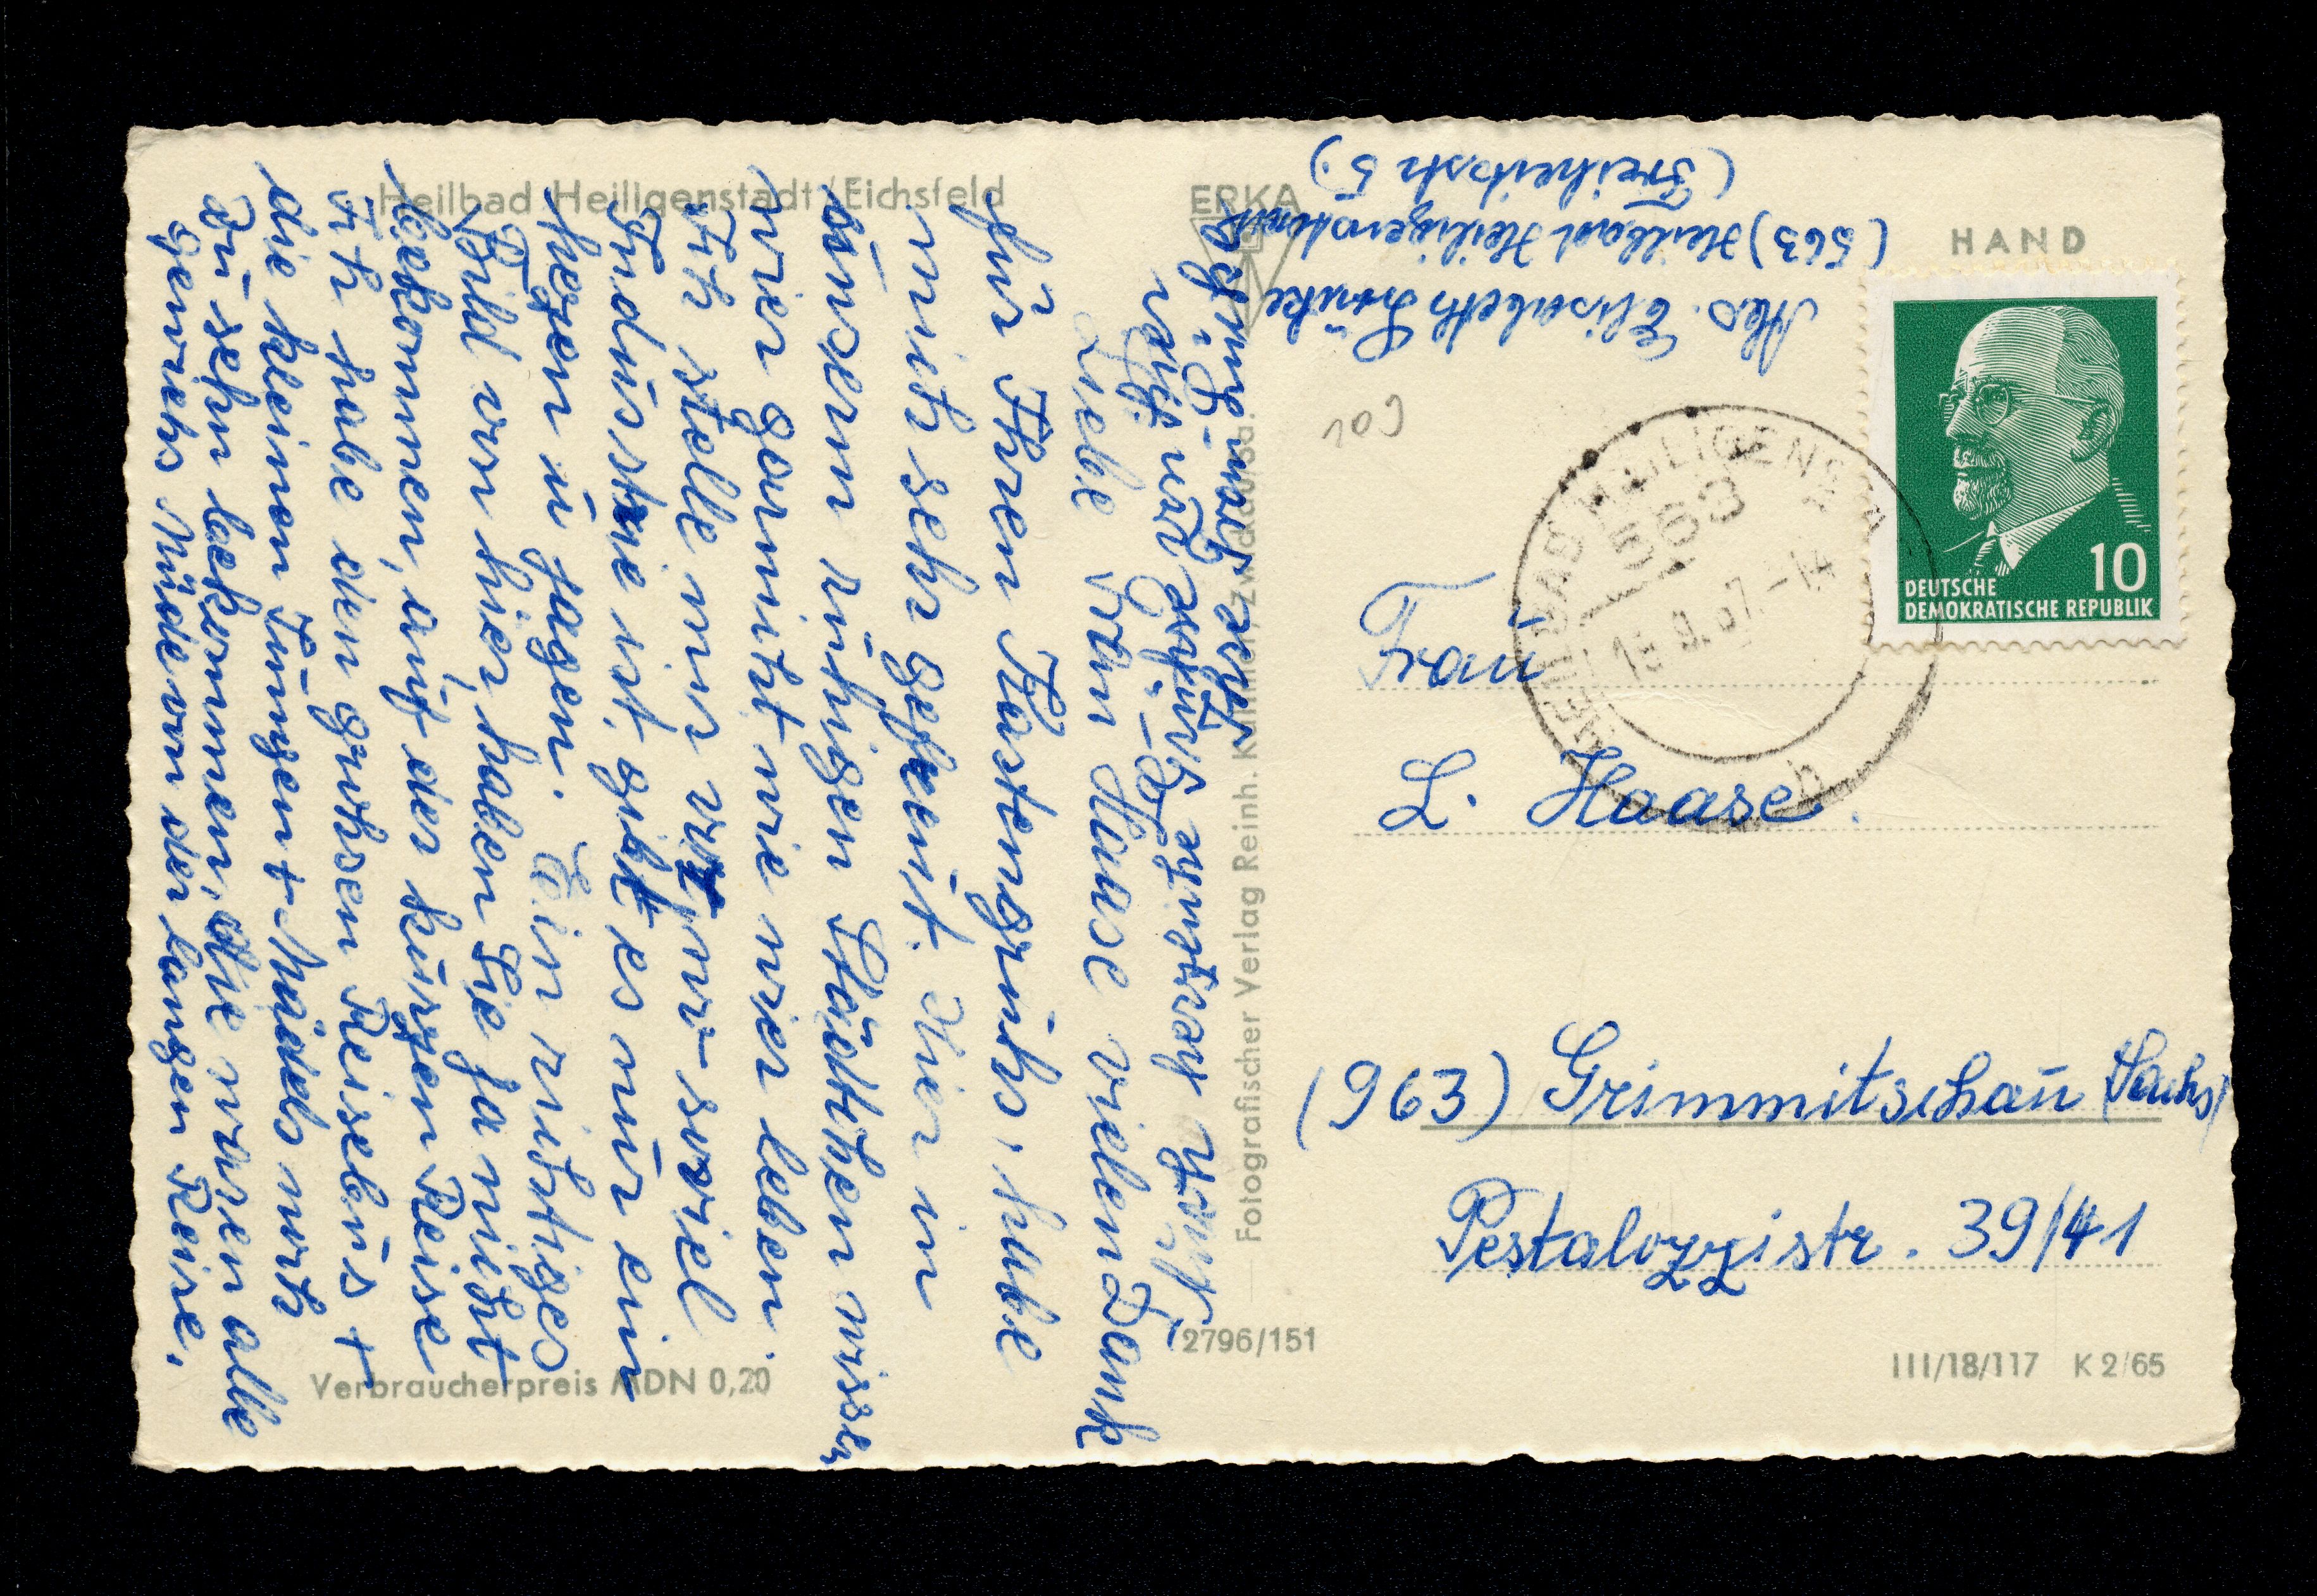 Heilbad Heiligenstadt/Eichsfeld
ERKA
HAND
Abs. Elisabeth
(563) Heilbad Heiligenstadt
(Freiheitsstr 5.)
Liebe Frau Haase vielen Dank
für Ihren Kartengruß, habe
mich sehr gefreut. Hier in
unserm ruhigen Städtchen wissen
wier garnicht wie wier leben.
Ich stelle mir vor, wo soviel
Industrie ist, gibt es nur ein
hegen u jagen. Ein richtiges
Bild von hier haben Sie ja nicht
bekommen, auf der kurzen Reise
Ich habe den grohsen Reisebus +
die kleinen Jungen + Mädels noch
zu sehn bekommen, die waren alle
gewiehs Müde von der langen Reise.
Noch herzliche Grüße von Ihrer
DEUTSCHE
DEMOKRATISCHE REPUBLIK
10
HEILBAD HEILIGENSTADT
563
9.67.-14
b
Frau
L. Haase.
(963) Grimmitschau (Sachs)
Pestalozzistr. 39/41
Fotografischer Verlag Reinh.
Verbraucherpreis MDN 0,20
2796/151
III/18/117 K 2/65